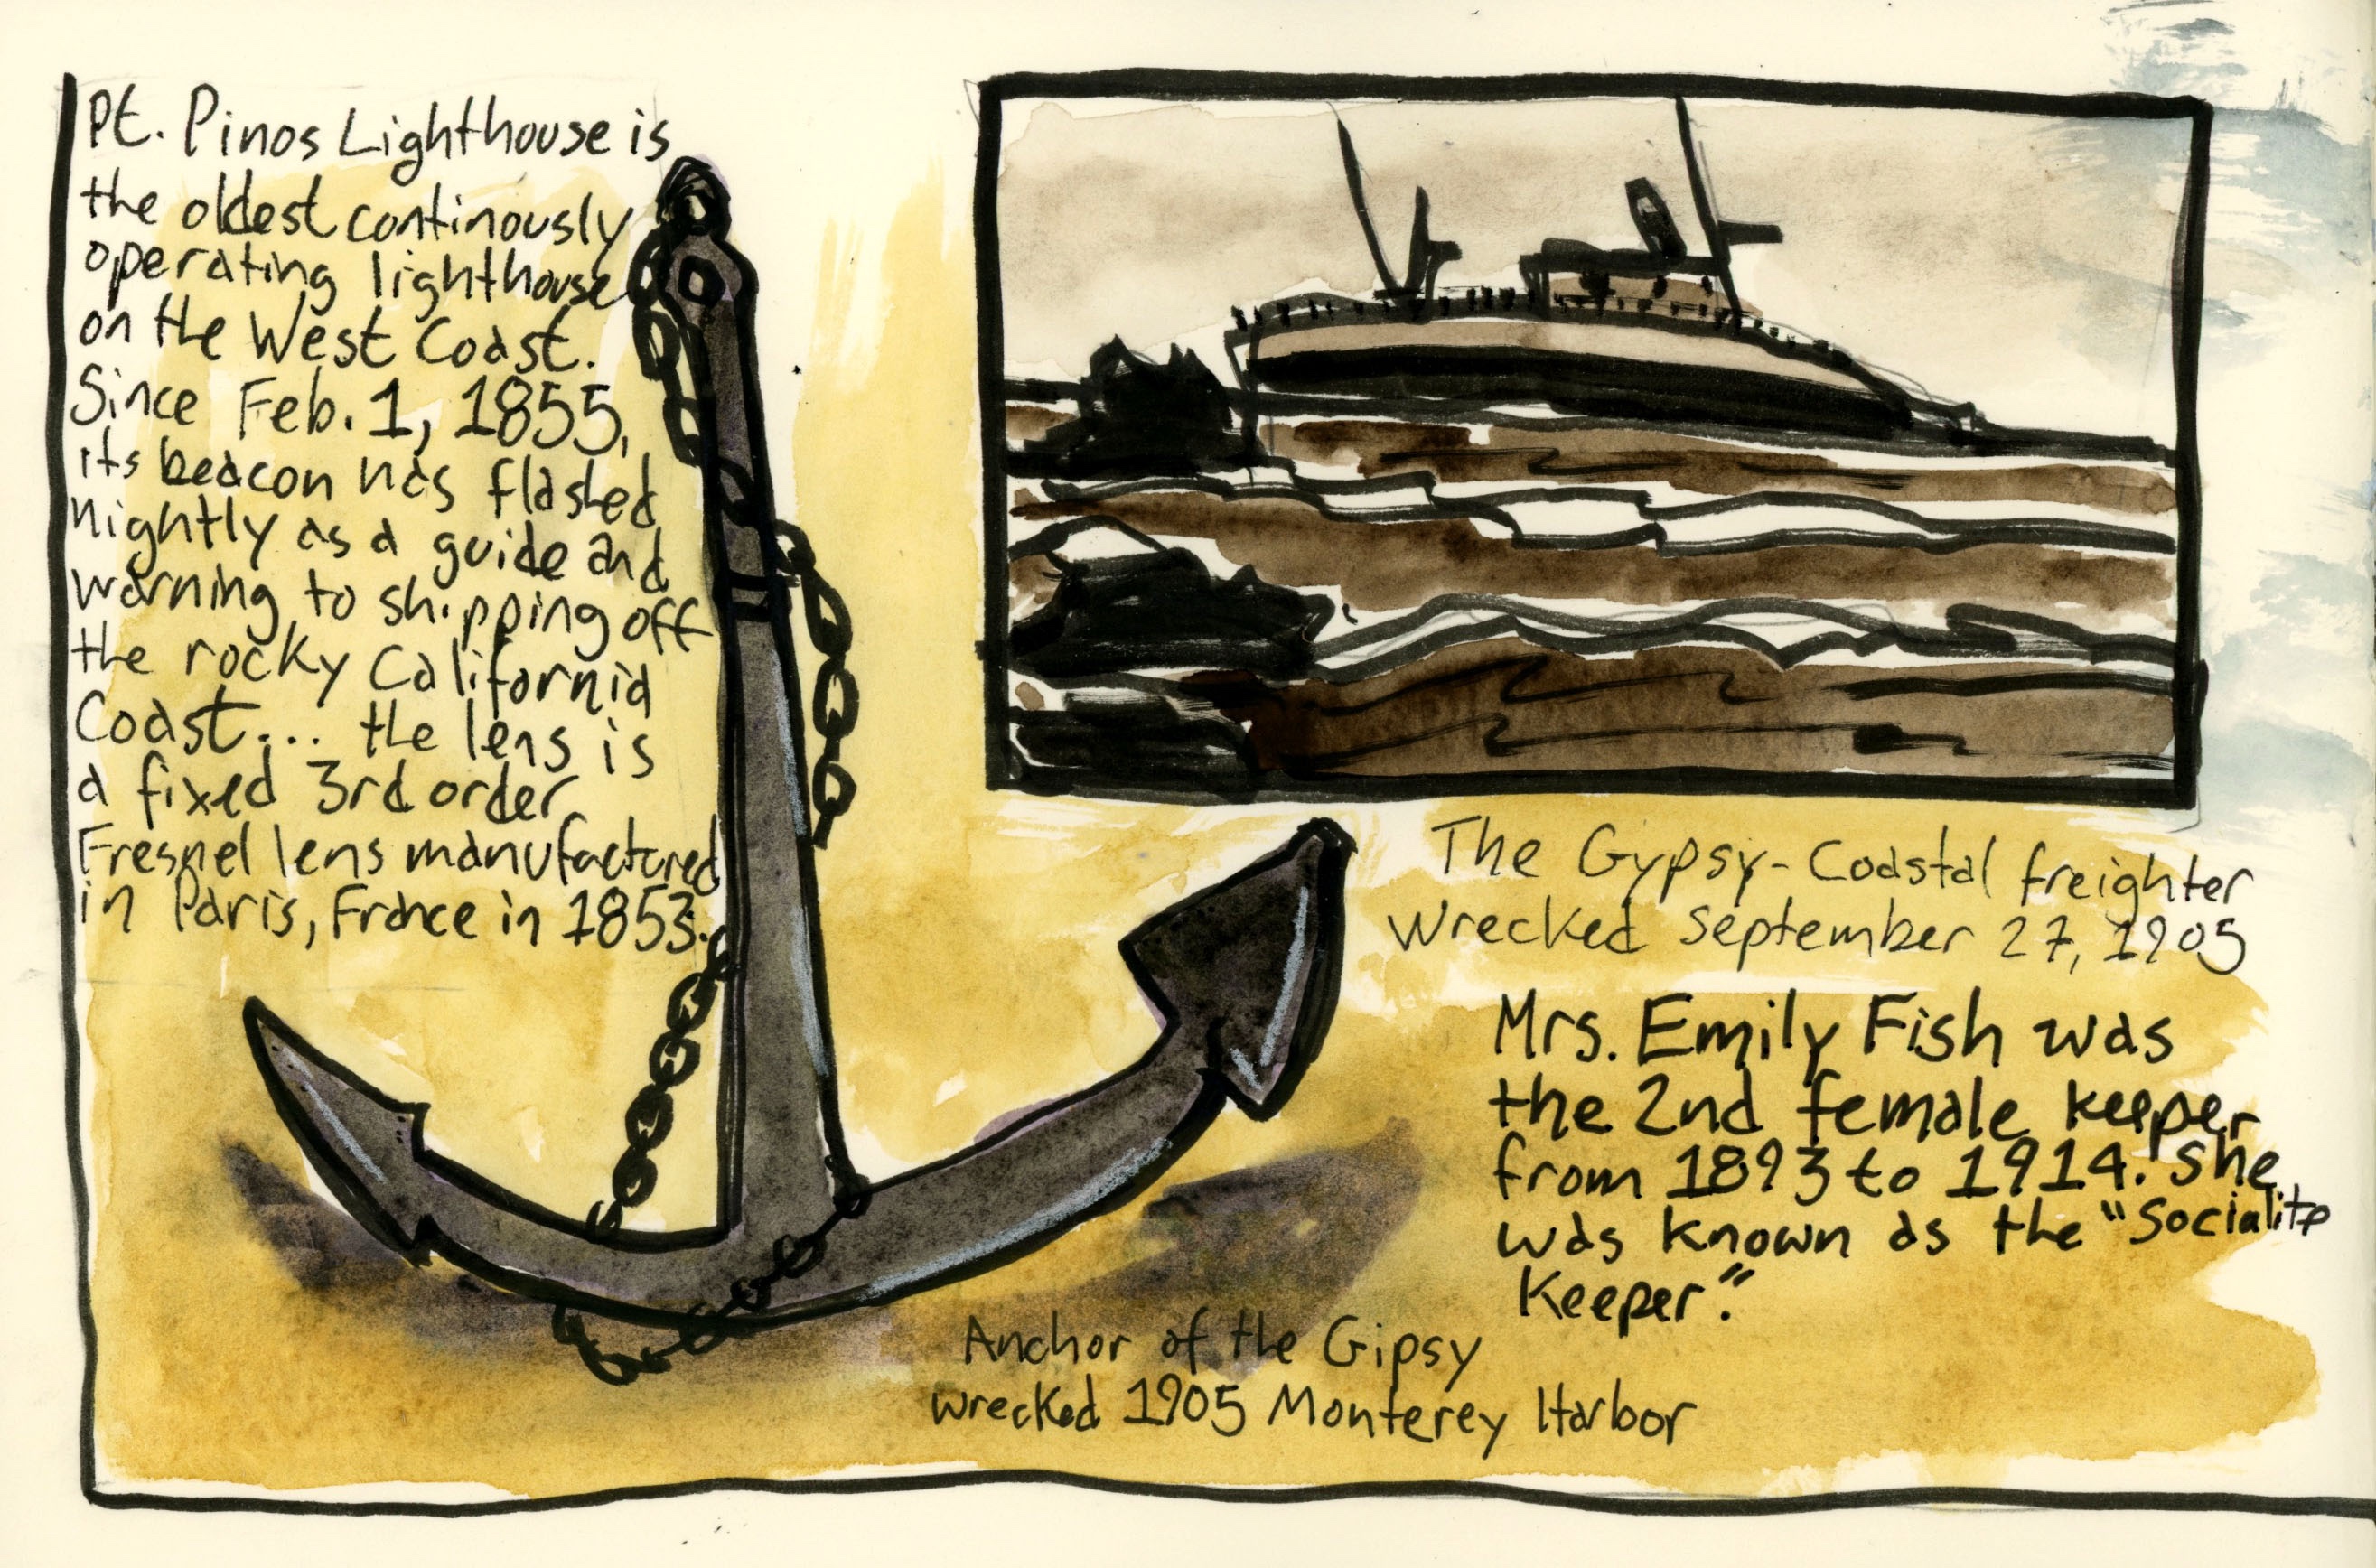 Pt. Pinos Lighthouse is
the oldest continously
operating lighthouse
on the West Coast.
Since Feb. 1, 1855,
its beacon has flashed
nightly as a guide and
warning to shipping off
the rocky California
Coast... the lens is
a fixed 3rd order
Fresnel lens manufactured
in Paris, France in 1853.
The Gypsy-Coastal freighter
wrecked September 27, 1905
Mrs. Emily Fish was
the 2nd female keeper
from 1893 to 1914. She
was known as the "Socialite
Keeper."
Anchor of the Gipsy
wrecked 1905 Monterey Harbor